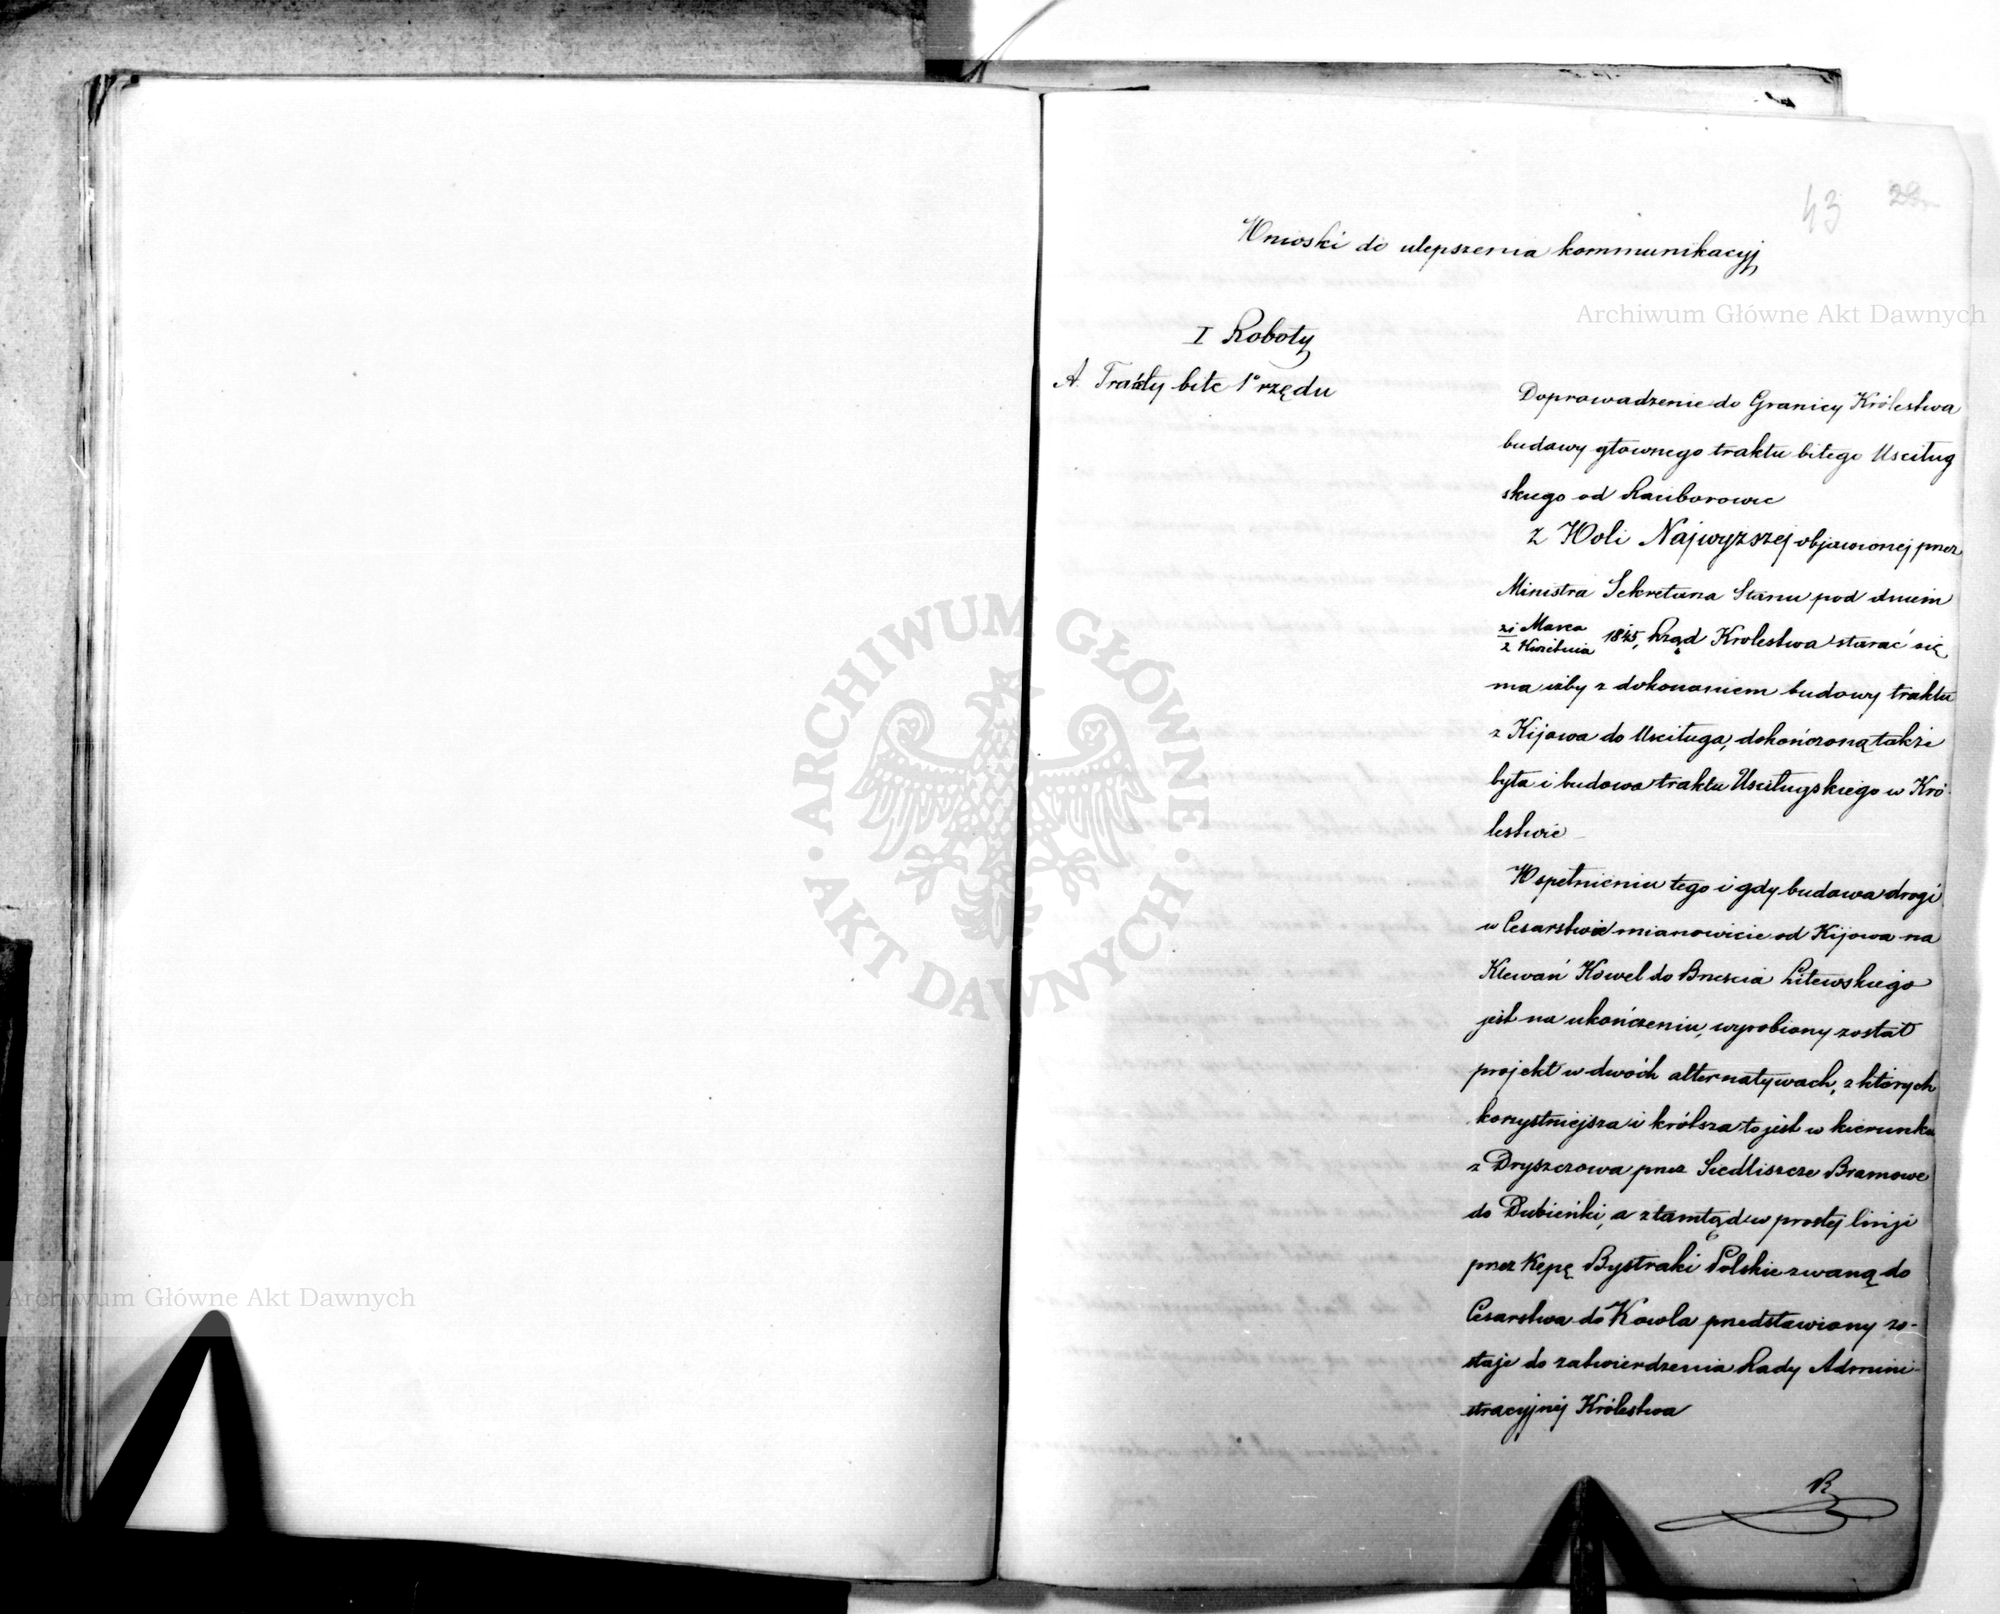 43
Wnioski do ulepszenia kommunikacyj
Archiwum Główne Akt Dawnych
I Roboty
A. Trakty bite 1° rzędu
Doprowadzenie do Granicy Królestwa
budowy głownego traktu bitego Uscitug
skiego od Raciborowic
Z Woli Najwyższej objawionej przez
Ministra Sekretarza Stanu pod dniem
21 Marca
2 Kwietnia 1845, Rząd Krolestwa starać się
ma iżby z dokonaniem budowy traktu
z Kijowa do Usciługa, dokończoną także
była i budowa traktu Usciługskiego w Kró-
lestwie
W spełnieniu tego i gdy budowa drogi
w Cesarstwie mianowicie od Kijowa na
Klewań Kowel do Brześcia Litewskiego
jest na ukończeniu, wyrobiony został
projekt w dwóch alternatywach, z których
korzystniejsza i krótsza to jest w kierunku
z Dryszczowa przez Siedliszcze Bramowe
do Dubienki, a ztamtąd w prostej linji
przez Kępę Bystraki Polskie zwaną do
Cesarstwa do Kowla przedstawiony zo-
staje do zatwierdzenia Rady Admini-
stracyjnej Królestwa
ARCHIWUM GŁÓWNE
AKT DAWNYCH
Archiwum Główne Akt Dawnych